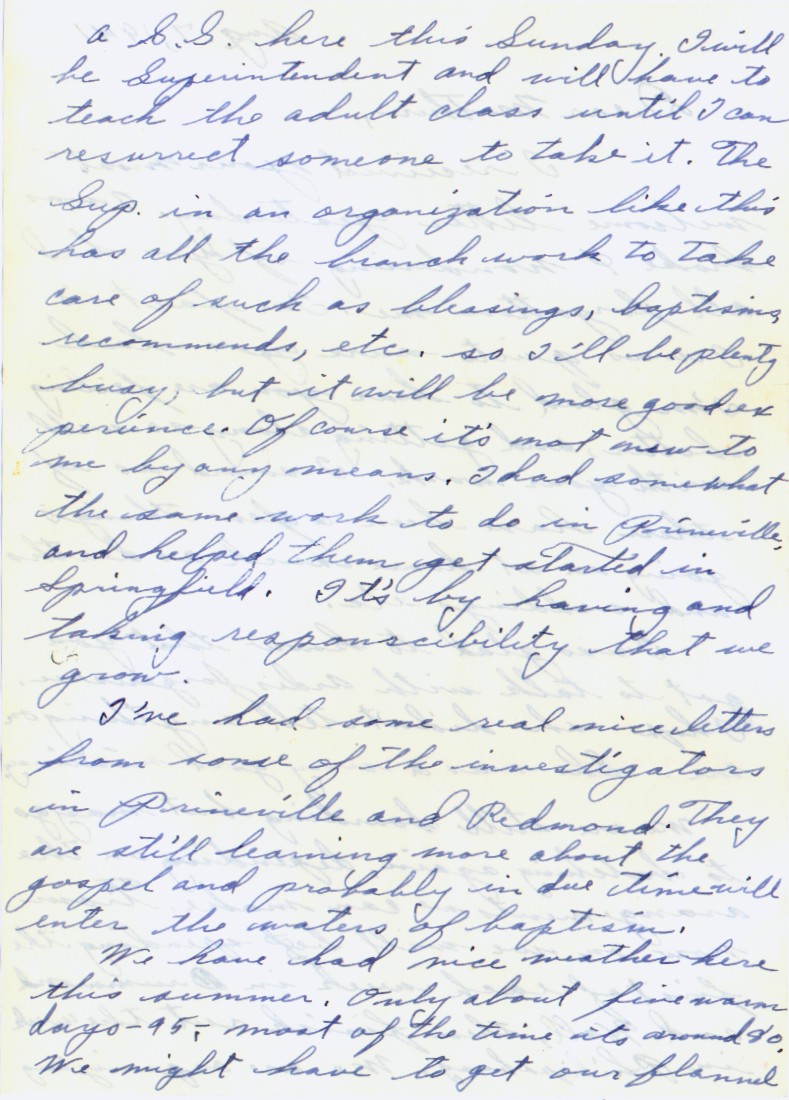 a S.S. here this Sunday. I will
be Superintendent and will have to
teach the adult class until I can
resurrect someone to take it. The
Sup. in an organization like this
has all the branch work to take
care of such as blessings, baptisms,
recommends, etc. so I'll be plenty
busy, but it will be more good ex
perience. Of course it's not new to
me by any means. I had somewhat
the same work to do in Prineville,
and helped them get started in
Springfield. It's by having and
taking responscibility that we
grow.
I've had some real nice letters
from some of the investigators
in Prineville and Redmond. They
are still learning more about the
gospel and probably in due time will
enter the waters of baptism.
We have had nice weather here
this summer. Only about five warm
days-95-, most of the time its around 80.
We might have to get our flannel